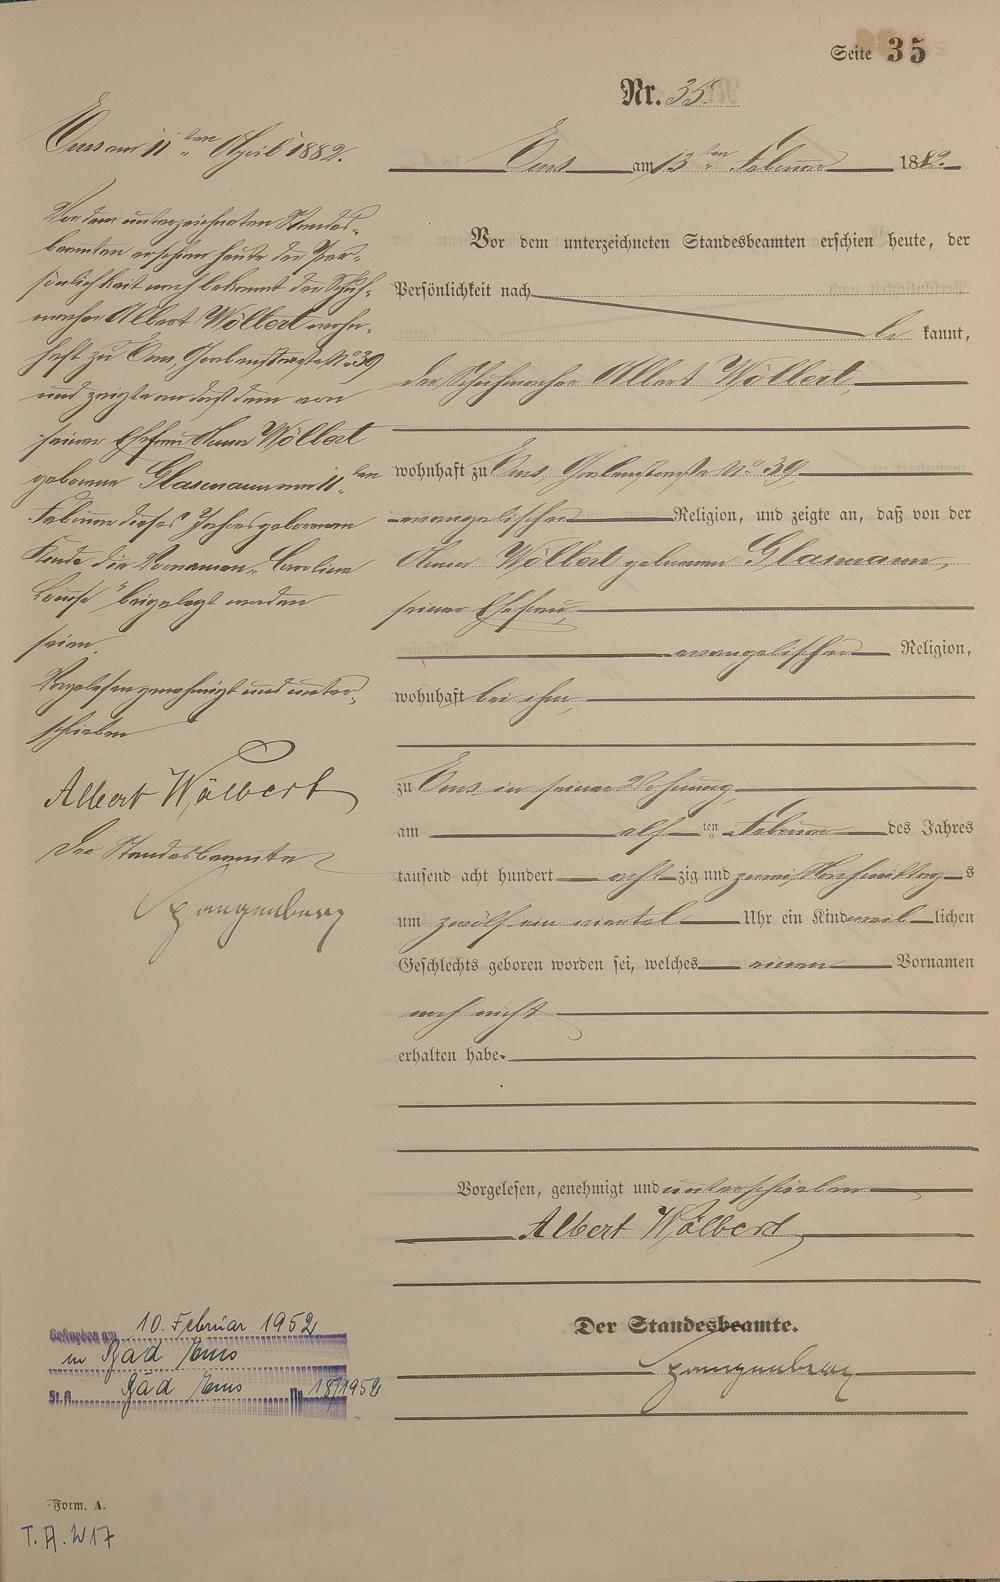 Seite 35
Nr. 35.
Ems am 13ten Februar 1882.
Vor dem unterzeichneten Standesbeamten erschien heute, der
Persönlichkeit nach
be kannt,
der Schuhmacher Albert Wölbert,
wohnhaft zu Ems, Grabenstraße No 39,
evangelischer Religion, und zeigte an, daß von der
Anna Wölbert geborenen Glasmann,
seiner Ehefrau,
evangelischer Religion,
wohnhaft bei ihm,
zu Ems in seiner Wohnung,
am elf ten Februar des Jahres
tausend acht hundert acht zig und zwei Nachmittag s
um zwölf ein viertel Uhr ein Kind weib lichen
Geschlechts geboren worden sei, welches einen Vornamen
noch nicht
erhalten habe.
Vorgelesen, genehmigt und unterschrieben
Albert Wölbert
Der Standesbeamte.
Spangenberg
Ems am 11ten April 1882.
Vor dem unterzeichneten Standes-
beamten erschien heute der Per-
sönlichkeit nach bekannt der Schuh-
macher Albert Wölbert wohn-
haft zu Ems, Grabenstraße No 39
und zeigte an daß dem von
seiner Ehefrau Anna Wölbert
geborene Glasmann am 11ten
Februar dieses Jahres geborenen
Kinde die Vornamen "Caroline
Louise" beigelegt worden
seien.
Vorgelesen genehmigt und unter-
schrieben
Albert Wölbert
Der Standesbeamte
Spangenberg
Gestorben am 10. Februar 1952
in Bad Ems
St. A. Bad Ems Nr. 18/1952
Form. A.
T. A. W 17